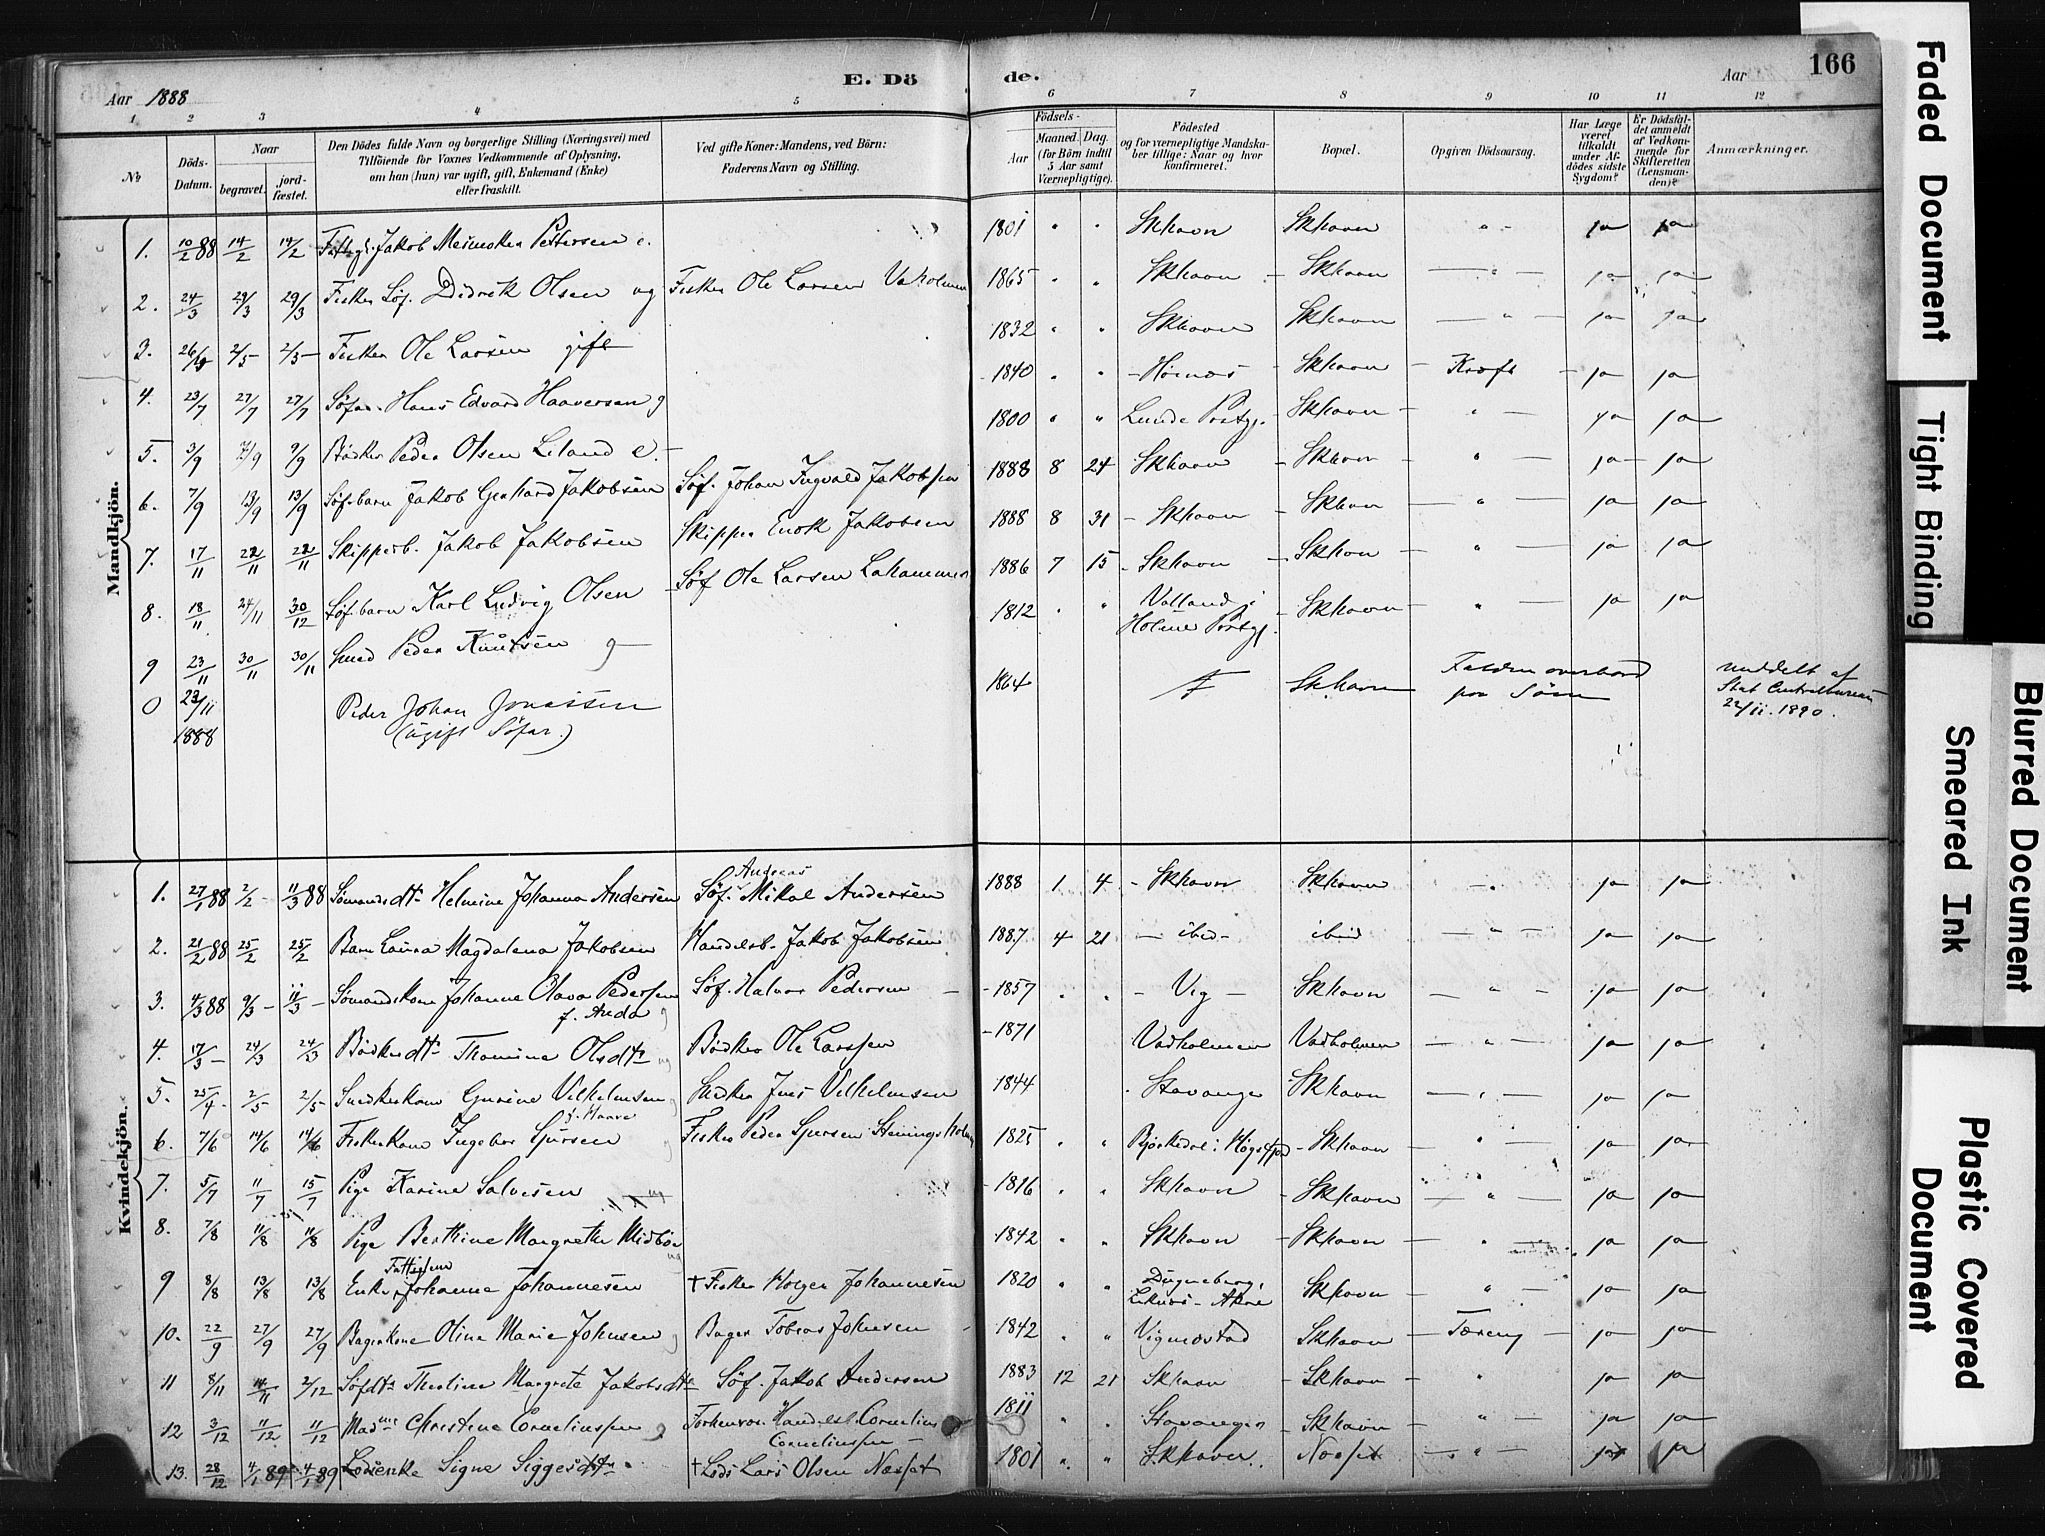 Aar 1888
E. Dö
de.
Aar
166
1 2 3 4 5 6 7 8 9 10 11 12
No
Döds-Datum.
Naar
begravet.
jordfæstet.
Den Dödes fulde Navn og borgerlige Stilling (Næringsvei) med
Tilföiende for Voxnes Vedkommende af Oplysning,
om han (hun) var ugift, gift, Enkemand (Enke)
eller fraskilt.
Ved gifte Koner: Mandens, ved Börn:
Faderens Navn og Stilling.
Födsels-
Aar
Maaned. Dag.
(for Börn indtil
5 Aar samt
Værnepligtige).
Födested
og for værnepligtige Mandska-
ber tillige: Naar og hvor
konfirmeret.
Bopæl.
Opgiven Dödsaarsag.
Har Læge
været
tilkaldt
under Af-
dödes sidste
Sygdom?
Er Dödsfal-
det anmeldt
af Vedkom-
mende for
Skifteretten
(Lensman-
den)?
Anmærkninger.
Mandkjön.
1. 10/2 88 14/2 14/2 Jakob Pettersen e. 1801 " " Skhavn Skhavn " ja ja
2. 24/3 29/3 29/3 Fisker Søf. Didrik Olsen ug Fisker Ole Larsen Vaholmen 1865 " " Skhavn - Skhavn — " — ja ja
3. 26/4 2/5 2/5 Fisker Ole Larsen gift 1832 " " Skhavn Skhavn — " — ja ja
4. 23/7 27/7 27/7 Søfar. Hans Edvard Haaversen g 1840 " " Hörnæs - Skhavn - Kræft - ja ja
5. 3/9 7/9 9/9 Bødker Peder Olsen Leland e. 1800 " " Lunde Prstgj. - Skhavn - " — ja ja
6. 7/9 13/9 13/9 Søf. barn Jakob Gerhard Jakobsen Søf. Johan Ingvald Jakobsen 1888 8 24 Skhavn - Skhavn - " — ja ja
7. 17/11 22/11 22/11 Skipperb. Jakob Jakobsen Skipper Enok Jakobsen 1888 8 31 - Skhavn - Skhavn — " — ja ja
8. 18/11 24/11 30/12 Søf. barn Karl Ludvig Olsen Søf Ole Larsen Lahammer 1886 7 15 - Skhavn - Skhavn - " — ja ja
9 23/11 30/11 30/11 Smed Peder Knutsen g 1812 " " Valland i
Holme Prstgj. - Skhavn - " — ja ja
0 23/11
1888 Peder Johan Jonassen
(ugift Søfar.) 1864 F Sk.havn Falden overbord
paa Søen meddelt af
Stat. Centralbureau
22/11. 1890.
Kvindekjön.
1. 27/1 88 2/2 11/3 88 Sømandsdtr Helmine Johanna Andersen Søf. Andreas Mikal Andersen 1888 1 4 - Skhavn Skhavn " ja ja
2. 21/2 88 25/2 25/2 Barn Laura Magdalena Jakobsen Handelsb. Jakob Jakobsen 1887 4 21 - ibid - ibid - " - ja ja
3. 4/3 88 9/3 - 11/3 - Sømandskone Johanne Olava Pedersen
f. Anda g Søf. Halvor Pedersen 1857 " " - Vig - Skhavn — " — ja ja
4. 17/3 - 24/3 24/3 Bødkerdtr Thomine Olsdtr ug Bødker Ole Larssen - 1871 Vadholmen Vadholmen — " — ja ja
5. 25/4 2/5 2/5 Snedkerkone Gurine Vilhelmsen g
f. Haave Snedker Jens Vilhelmsen 1844 Stavanger Skhavn — " — ja ja
6. 7/6 14/6 14/6 Fiskerkone Ingebor Sjursen g Fisker Peder Sjursen Steiningsholm 1825 " " Bjørkedal i Høgsfjord - Skhavn " ja ja
7. 5/7 11/7 15/7 Pige Karine Salvesen ug 1816 " " Skhavn - Skhavn - " - ja ja
8. 7/8 11/8 11/8 Pige Berthine Margrethe Midbøe ug 1842 " " Skhavn - Skhavn - " - ja ja
9 8/8 13/8 13/8 Enke Johanne Johannesen † Fisker Holger Johannesen 1820 " " Skhavn " ja ja
10. 22/9 27/9 27/9 Bagerkone Olina Marie Johnsen g Bager Tobias Johnsen 1842 " " Vigmostad Skhavn - Tæring - ja ja
11 8/11 14/11 2/12 Søfdtr Thaline Margrete Jakobsdtr Søf. Jakob Andersen 1883 12 21 Skhavn - Skhavn - " ja ja
12 3/12 11/12 11/12 Madme Christine Corneliussen g Handelsb. Cornelius
Corneliussen 1811 " " Stavanger - Skhavn " - ja ja
13. 28/12 4/1 89 4/1 89 Lodsenke Signe Siggesdtr † Lods Lars Olsen Næset 1801 " " Skhavn Næset - " - ja ja
Faded Document
Tight Binding
Blurred Document
Smeared Ink
Plastic Covered
Document